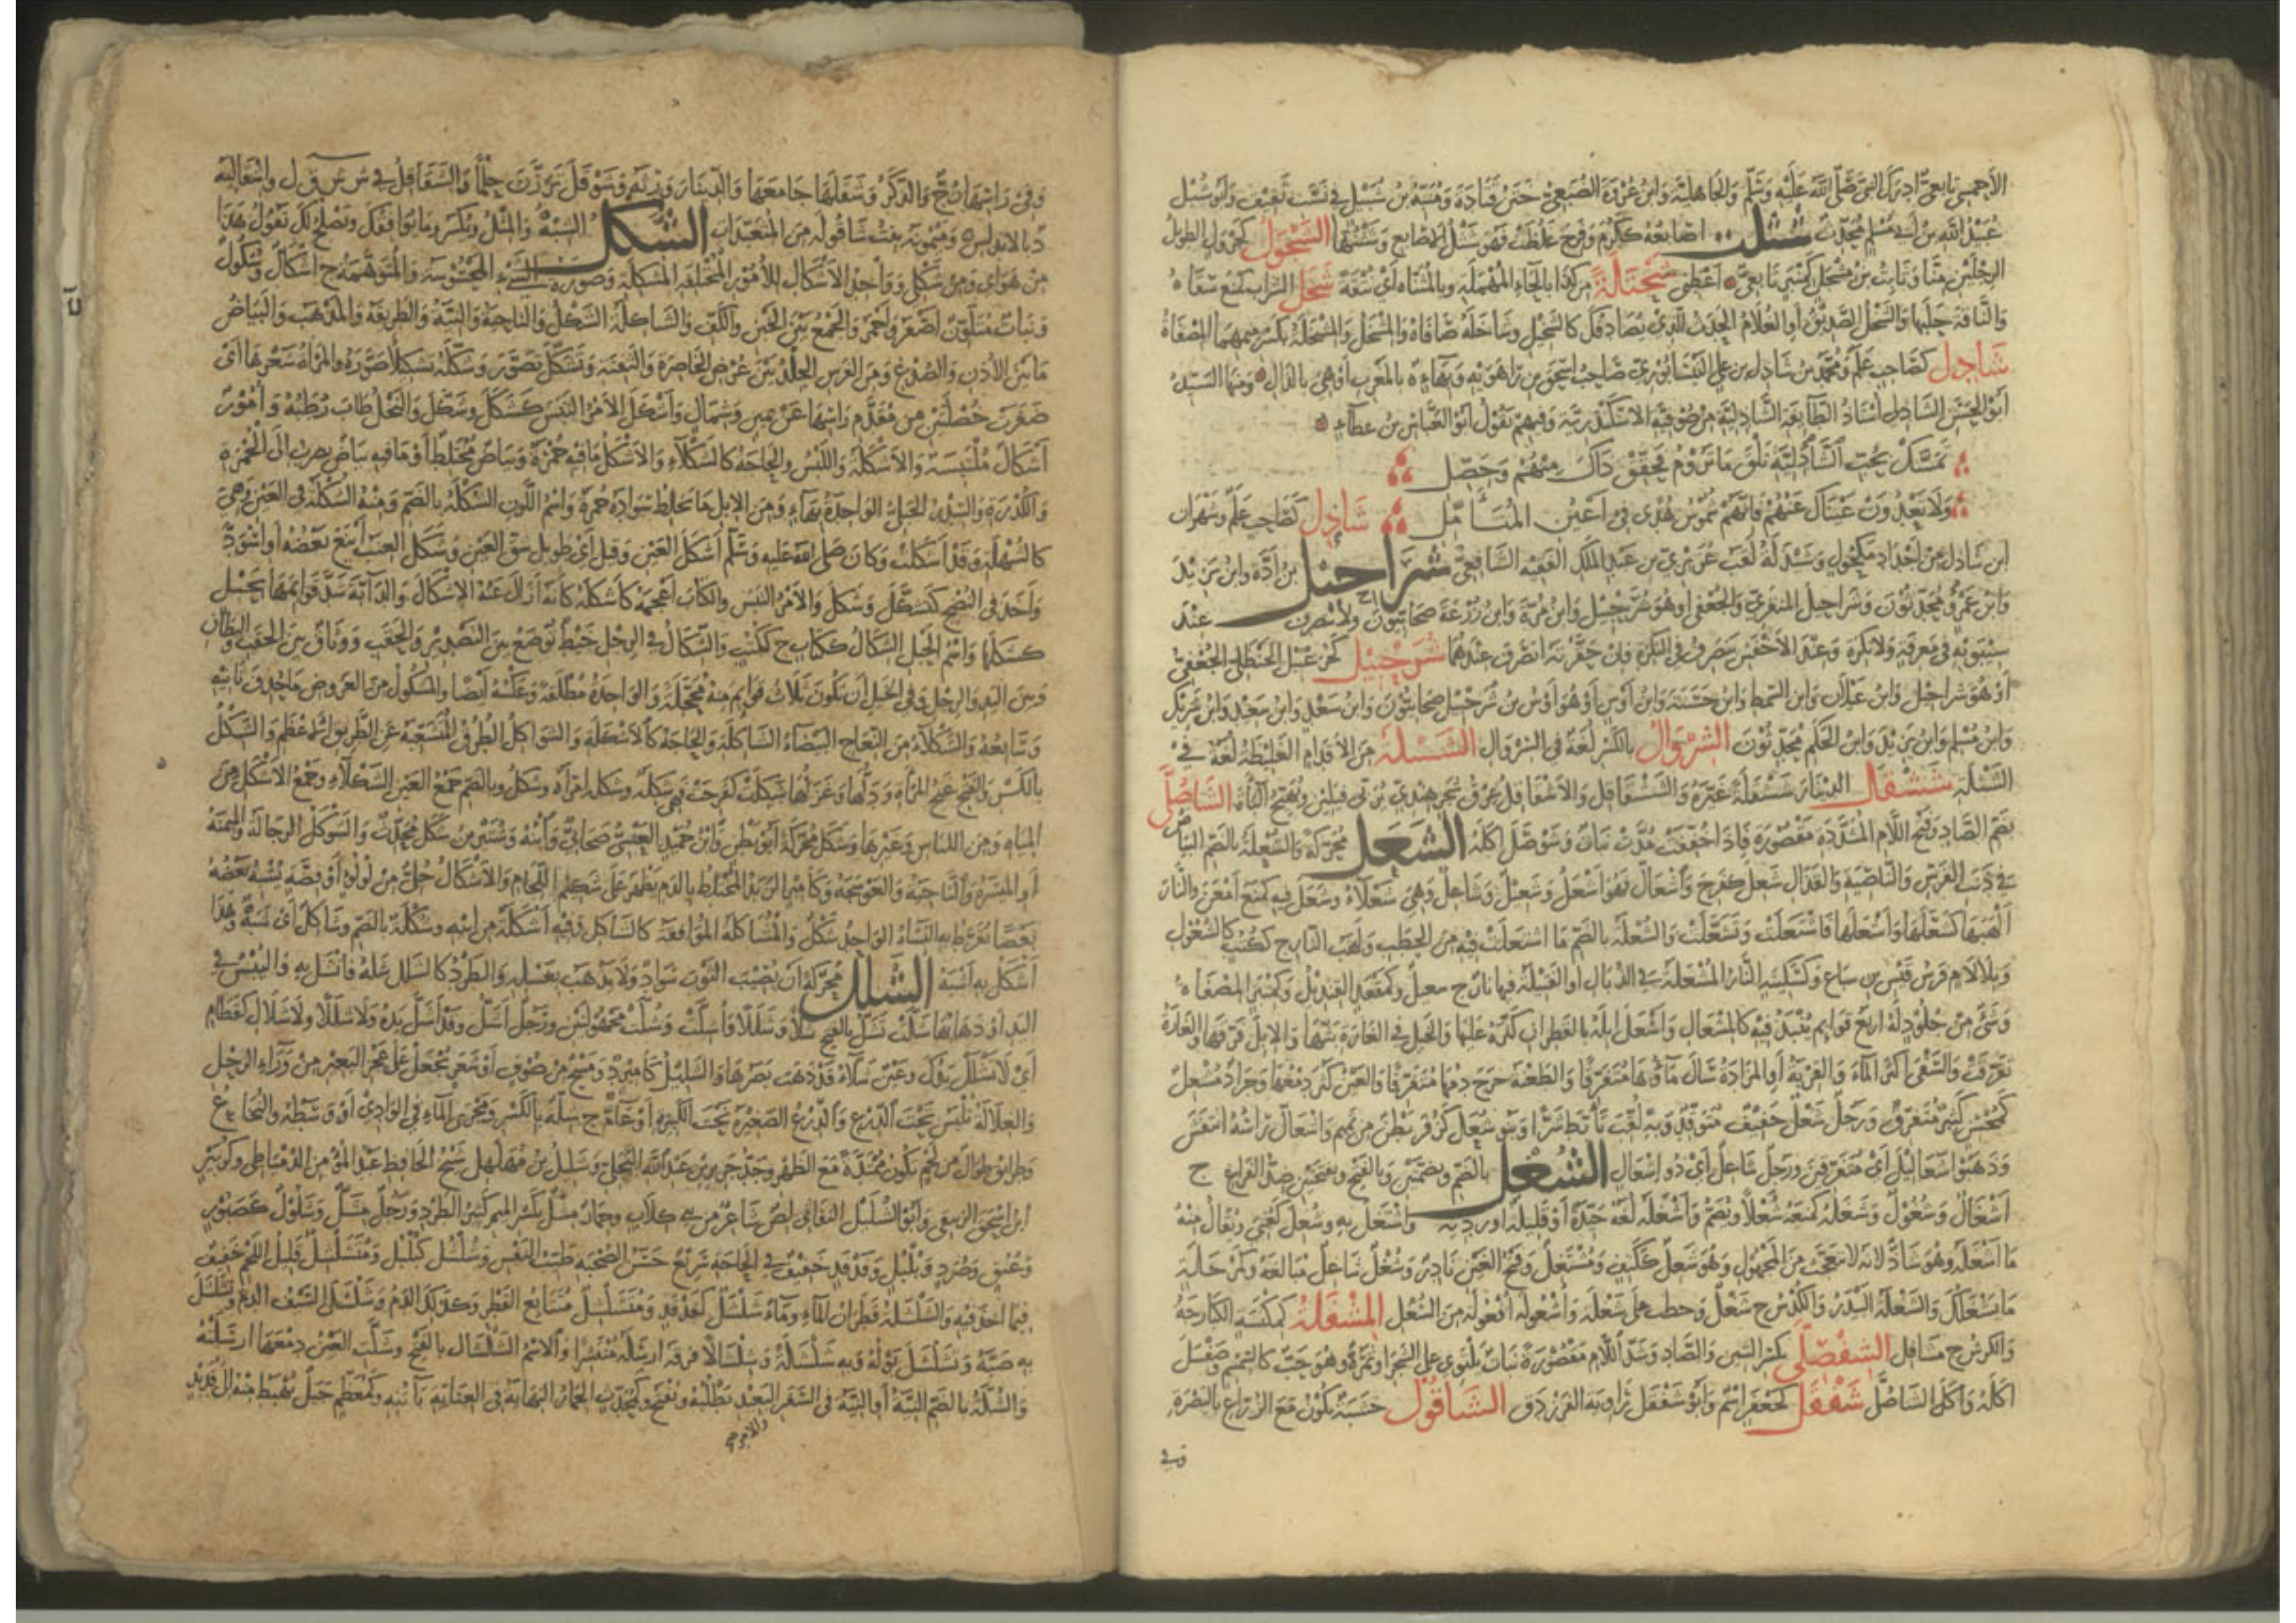 الأحمسي تابعي أدرك النبي صلى الله عليه وسلم والجاهلية وابن عزرة الضبعي ختن قتادة ومنبه بن شبيل في نسب ثقيف وأبو شبيل
عبيد الله بن أبي مسلم محدث شثلت أصابعه ككرم وفرح غلظت فهو شثل الأصابع وشثنها الشحول كجرول الطويل
الرجلين منا وثابت بن مشحل كمنبر تابعي أعطني شحتالة من كذا بالحاء المهملة وبالمثناة أي نتفة شخل الشراب كمنع صفاه
والناقة حلبها والشخل الصديق أو الغلام الحدث الذي يصادقك كالشخيل وشاخله صافاه والمشخل والمشخلة بكسر ميمهما المصفاة
شادل كصاحب علم ومحمد بن شادل بن علي النيسابوري صاحب إسحق بن راهويه وبهاء ة بالمغرب أو هي بالذال ومنها السيد
أبو الحسن الشاذلي أستاذ الطائفة الشاذلية من صوفية الإسكندرية وفيهم يقول أبو العباس بن عطاء
تمسك بحب الشاذلية تلق ما تروم فحقق ذاك منهم وحصل
ولا يعدون عيناك عنهم فإنهم شموس هدى في أعين المتأمل شاذل كصاحب علم ومهران
ابن شاذل من أجداد مكحول وشيذلة لقب عزيزي بن عبد الملك الفقيه الشافعي شراحيل بن أدة وابن يزيد
وابن عمرو محدثون وشراحيل المنقري والجعفي أو هو شرحبيل وابن مرة وابن زرعة صحابيون ولا ينصرف عند
سيبويه في معرفة ولا نكرة وعند الأخفش ينصرف في النكرة فإن حقرته انصرف عندهما شرحبيل كخزعبيل الحنظلي الجعفي
أو هو شراحيل وابن غيلان وابن السمط وابن حسنة وابن أوس أو هو أوس بن شرحبيل صحابيون وابن سعد وابن سعيد وابن شريك
وابن مسلم وابن يزيد وابن الحكم محدثون الشروال بالكسر لغة في السروال الششلة من الأقدام الغليظة لغة في
الشثلة ششقل الدينار ششقلة عيره والششقاقل والأشقاقل عرق شجر هندي يربى فيلين ويهيج الباءة الشاصلى
بضم الصاد وفتح اللام المشددة مقصورة فإذا خففت مدت نبات وشوصل أكله الشعل محركة والشعلة بالضم البياض
في ذنب الفرس والناصية والقذال شعل كفرح واشعال فهو أشعل وشعيل وشاعل وهي شعلاء وشعل فيه كمنع أمعن والنار
ألهبها كشعلها وأشعلها فاشتعلت وتشعلت والشعلة بالضم ما اشتعلت فيه من الحطب ولهب النار ج كصحف كالشعلول
وبلا لام فرس قيس بن سباع وكسفينة النار المشعلة في الذبال أو الفتيلة فيها نار ج شعيل وكمقعد القنديل وكمنبر المصفاة
وشيء من جلود له أربع قوائم ينبذ فيه كالمشعال وأشعل إبله بالقطران كثره عليها والخيل في الغارة بثها والإبل فرقها والغارة
تفرقت والسقي أكثر الماء والقربة أو المزادة سال ماؤها متفرقا والطعنة خرج دمها متفرقا والعين كثر دمعها وجراد مشعل
كمحسن كثير متفرق ورجل شعل خفيف متوقد وبه لقب تأبط شرا وبنو شعل كزفر بطن من تميم واشعال رأسه انتفش
وذهبوا شعاليل أي متفرقين ورجل شاعل أي ذو إشعال الشغل بالضم وبضمتين وبالفتح وبفتحتين ضد الفراغ ج
أشغال وشغول وشغله كمنعه شغلا ويضم وأشغله لغة جيدة أو قليلة أو ردية واشتغل به وشغل كعني ويقال منه
ما أشغله وهو شاذ لأنه لا يتعجب من المجهول وهو شغل ككتف ومشتغل وفتح الغين نادر وشغل شاغل مبالغة
والشغلة البيدر والكدس ج شغل وأشغولة أفعولة من الشغل المشفلة كمكنسة الكبارجة
والكرش ج مشافل الشفصلى بكسر الشين والصاد وشد اللام مقصورة نبات يلتوي على الشجر أو ثمره وهو حب كالسمسم وشفصل
أكله وأكل الشاصلى شفقل كجعفر اسم وأبو شفقل راوية الفرزدق الشاقول خشبة تكون مع الزراع بالبصرة
وفي
وفي رأسها زج والذكر وشقلها جامعها والدينار وزنه وشوقل ترزن حلما والشقاقل في ش ش ق ل واشقالية
د بالأندلس وميمونة بنت شاقولة من المتعبدات الشكل الشبه والمثل ويكسر وما يوافقك ويصلح لك تقول هذا
من هواي ومن شكلي وواحد الأشكال للأمور المختلفة المشكلة وصورة الشيء المحسوسة والمتوهمة ج أشكال وشكول
ونبات متلون أصفر وأحمر والجمع بين الخبن والكف والشاكلة الشكل والناحية والنية والطريقة والمذهب والبياض
ما بين الأذن والصدغ ومن الفرس الجلد بين عرض الخاصرة والثفنة وتشكل تصور وشكله تشكيلا صوره والمرأة شعرها أي
ضفرت خصلتين من مقدم رأسها عن يمين وشمال وأشكل الأمر التبس كشكل وشكل والنخل طاب رطبه وأمور
أشكال ملتبسة والأشكلة واللبس والحاجة كالشكلاء والأشكل ما فيه حمرة وبياض مختلط أو ما فيه بياض يضرب إلى الحمرة
والكدرة والسدر الجبلي الواحدة بهاء ومن الإبل ما يخالط سواده حمرة واسم اللون الشكلة بالضم ومنه الشكلة في العين وهي
كالشهلة وقد أشكلت وكان صلى الله عليه وسلم أشكل العين وقيل أي طويل شق العين وشكل العنب أينع بعضه أو اسود
وأخذ في النضج كتشكل وشكل والأمر التبس والكتاب أعجمه كأشكله كأنه أزال عنه الإشكال والدابة شد قوائمها بحبل
كشكلها واسم الحبل الشكال ككتاب ج ككتب والشكال في الرحل خيط يوضع بين التصدير والحقب ووثاق بين الحقب والبطان
وبين اليد والرجل وفي الخيل أن تكون ثلاث قوائم منه محجلة والواحدة مطلقة وعكسه أيضا والمشكول من العروض ما حذف ثانيه
وسابعه والشكلاء من النعاج البيضاء الشاكلة والحاجة كالأشكلة والشواكل الطرق المتشعبة عن الطريق الأعظم والشكل
بالكسر والفتح غنج المرأة ودلها وغزلها شكلت كفرحت فهي شكلة وشكلة امرأة وشكل وبالضم جمع العين الشكلاء وجمع الأشكل من
المياه ومن الكباش وغيرها وشكل محركة أبو بطن وابن حميد العبسي صحابي وابنه وشتير بن شكل محدث والشوكل الرجالة والميمنة
أو الميسرة والناحية والعوسجة وكأمير الزبد المختلط بالدم يظهر على شكيم اللجام والأشكال حلي من لؤلؤ أو فضة يشبه بعضه
بعضا يقرط به النساء الواحد شكل والمشاكلة الموافقة كالتشاكل وفيه أشكلة من أبيه وشكلة بالضم وشاكل أي شبه وهذا
أشكل به أشبه الشلل محركة أن يصيب الثوب سواد ولا يذهب بغسله والطرد كالشل شله فانشل به واليبس في
اليد أو ذهابها شلت تشل بالفتح شلا وشللا وأشلت وشلت مجهولتين ورجل أشل وقد أشل يده ولا شللا ولا شلال كقطام
أي لا تشلل يدك وعين شلاء قد ذهب بصرها والشليل كأمير ومسح من صوف أو شعر يجعل على عجز البعير من وراء الرحل
والغلالة تلبس تحت الدرع والدرع الصغيرة تحت الكبيرة أو عام ج شلة بالكسر ومجرى الماء في الوادي أو وسطه والنخاع
وطرائق طوال من لحم تكون ممتدة مع الظهر وجد جرير بن عبد الله البجلي وشليل بن مهلهل شيخ الحافظ عبد المؤمن الدمياطي وكزبير
ابن إسحق الزنبقي وأبو الشليل النفاثي لص شاعر من بني كلاب وحمار مشل بكسر الميم كثير الطرد ورجل مشل وشلول كصبور
وعنق وصرد وبلبل وفدفد خفيف في الحاجة سريع حسن الصحبة طيب النفس وشلشل كبلبل ومتشلشل قليل اللحم خفيف
فيما أخذ فيه والشلشلة قطران الماء وماء شلشل كفدفد ومتشلشل متتابع القطر وكذلك الدم وشلشل السيف الدم وتشلشل
به صبه وتشلشل بوله وبه شلشلة وشلشالا فرقه أرسله منتشرا والاسم الشلشال بالفتح وشلت العين دمعها أرسلته
والشلة بالضم النية أو النية في السفر والبعد تطلبه ويفتح وكمحدث الحمار النهاية في العناية بأتنه وكمعظم جبل يهبط منه إلى قديد
والأمر